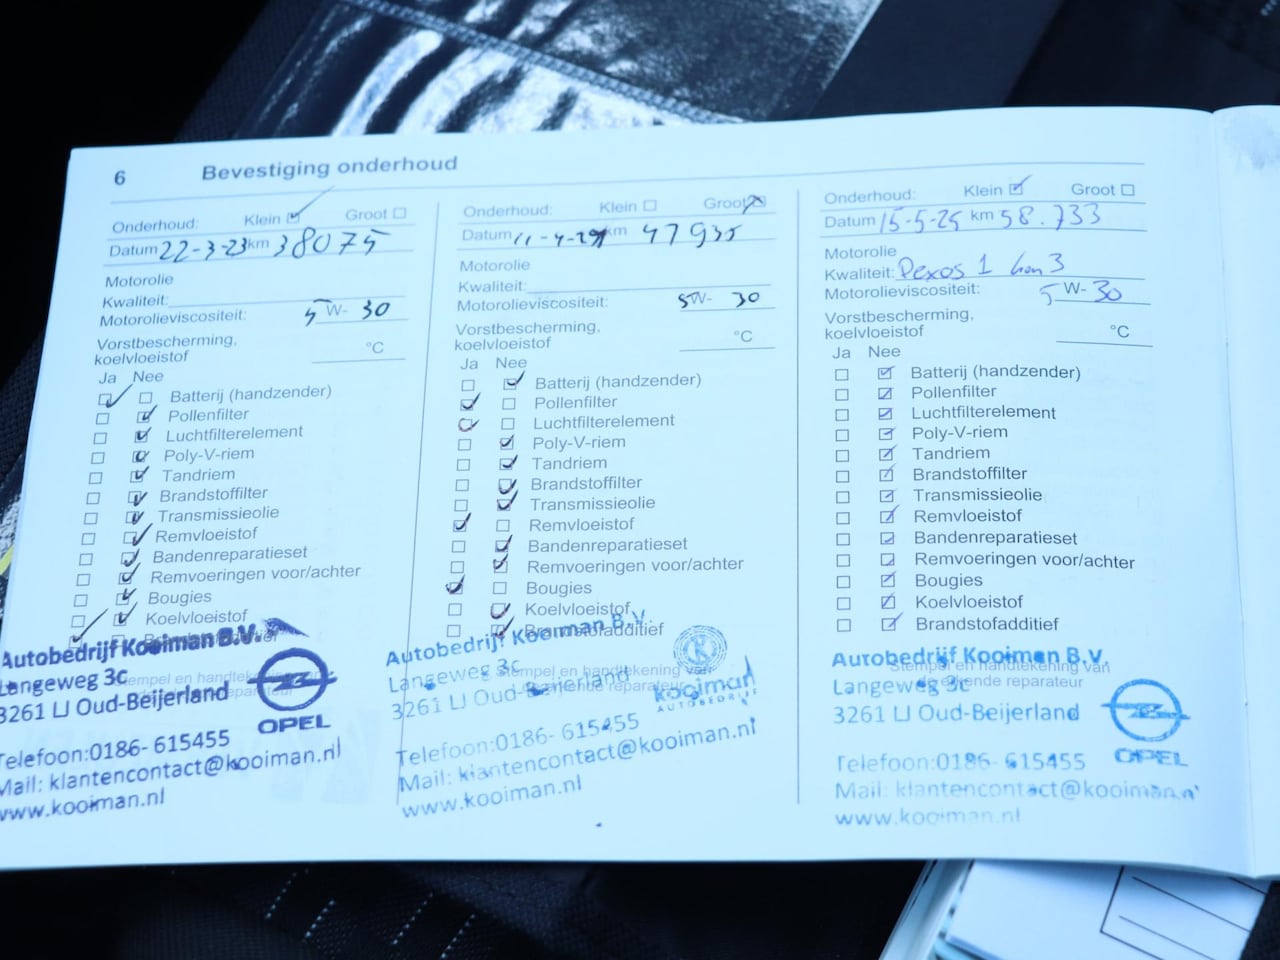 6 Bevestiging onderhoud
Onderhoud: Klein Groot
Datum 22-3-23 km 38075
Motorolie
Kwaliteit:
Motorolieviscositeit: 5 W- 30
Vorstbescherming,
koelvloeistof °C
Ja Nee
Batterij (handzender)
Pollenfilter
Luchtfilterelement
Poly-V-riem
Tandriem
Brandstoffilter
Transmissieolie
Remvloeistof
Bandenreparatieset
Remvoeringen voor/achter
Bougies
Koelvloeistof
Autobedrijf Kooiman B.V.
Langeweg 3c
3261 LJ Oud-Beijerland
OPEL
Telefoon:0186- 615455
Mail: klantencontact@kooiman.nl
www.kooiman.nl
Onderhoud: Klein Groot
Datum 11-4- km 47935
Motorolie
Kwaliteit:
Motorolieviscositeit: 5 W- 30
Vorstbescherming,
koelvloeistof °C
Ja Nee
Batterij (handzender)
Pollenfilter
Luchtfilterelement
Poly-V-riem
Tandriem
Brandstoffilter
Transmissieolie
Remvloeistof
Bandenreparatieset
Remvoeringen voor/achter
Bougies
Koelvloeistof
Brandstofadditief
Stempel en handtekening van
reparateur
Autobedrijf Kooiman B.V.
Langeweg 3c
3261 LJ Oud-Beijerland
kooiman
AUTOBEDRIJF
Telefoon:0186- 615455
Mail: klantencontact@kooiman.nl
www.kooiman.nl
Onderhoud: Klein Groot
Datum 15-5-25 km 58.733
Motorolie
Kwaliteit: Dexos 1 Gen 3
Motorolieviscositeit: 5 W- 30
Vorstbescherming,
koelvloeistof °C
Ja Nee
Batterij (handzender)
Pollenfilter
Luchtfilterelement
Poly-V-riem
Tandriem
Brandstoffilter
Transmissieolie
Remvloeistof
Bandenreparatieset
Remvoeringen voor/achter
Bougies
Koelvloeistof
Brandstofadditief
Stempel en handtekening van
reparateur
Autobedrijf Kooiman B.V.
Langeweg 3c
3261 LJ Oud-Beijerland
OPEL
Telefoon:0186- 615455
Mail: klantencontact@kooiman.nl
www.kooiman.nl